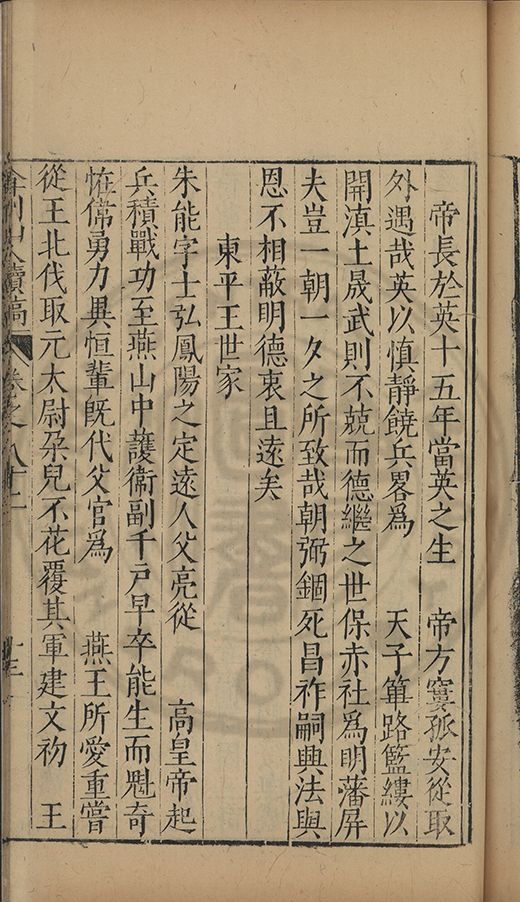 帝長於英十五年當英之生　帝方窶孤安從取
外遇哉英以慎靜饒兵畧爲　天子篳路籃縷以
開滇土晟武則不兢而德繼之世保赤社爲明藩屏
夫豈一朝一夕之所致哉朝弼錮死昌祚嗣興法與
恩不相蔽明德衷且遠矣
東平王世家
朱能字士弘鳳陽之定遠人父亮從　高皇帝起
兵積戰功至燕山中護衛副千戸早卒能生而魁奇
恠偉勇力異恒輩旣代父官爲　燕王所愛重嘗
從王北伐取元太尉朶兒不花覆其軍建文初　王
弇州山人續稿　卷之八十二　十三